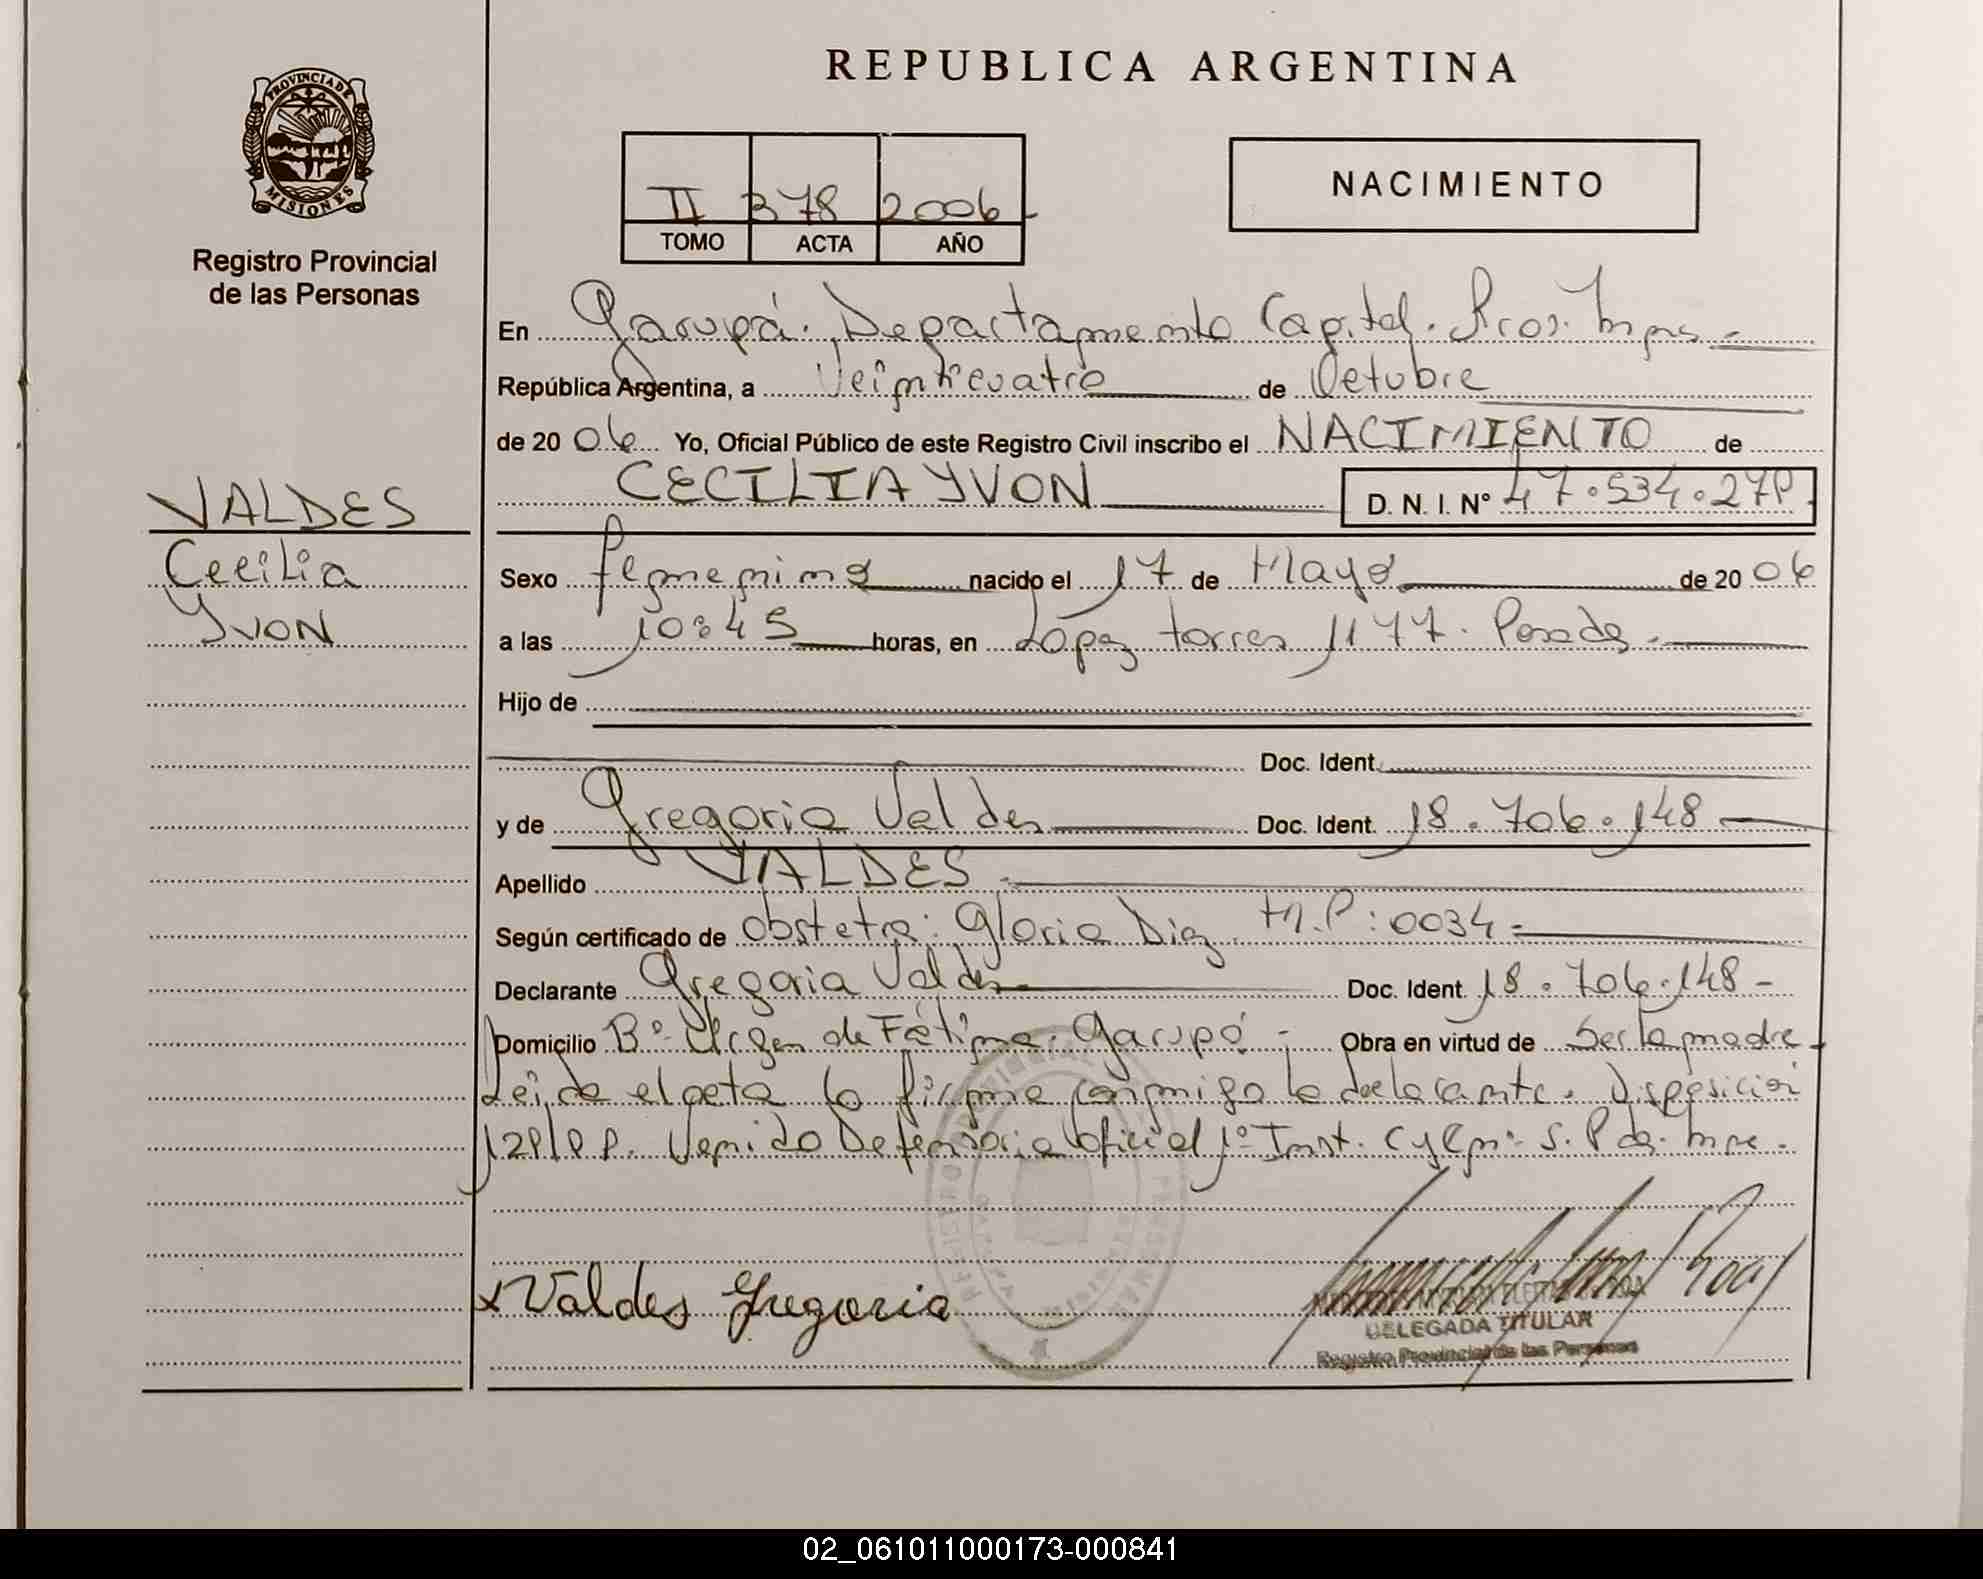 REPUBLICA ARGENTINA
PROVINCIA DE
MISIONES
Registro Provincial
de las Personas
II 378 2006
TOMO ACTA AÑO
NACIMIENTO
En Garupá. Departamento Capital.
República Argentina, a Veinticuatro de Octubre
de 20 06 Yo, Oficial Público de este Registro Civil inscribo el NACIMIENTO de
CECILIA YVON D. N. I. N°
VALDES
Cecilia
Yvon
Sexo femenino nacido el 17 de Mayo de 20 06
a las 10:45 horas, en López torres 1177. Posadas
Hijo de
Doc. Ident.
y de Gregoria Valdes Doc. Ident. 18.706.148
Apellido VALDES
Según certificado de obstetra: Gloria Diaz M.P: 0034
Declarante Gregoria Valdes Doc. Ident. 18.706.148
Domicilio B° Virgen de Fátima. Garupá Obra en virtud de Ser la madre
Leida el acta la firma conmigo la declarante. Disposición
Defensoria Oficial 1° Inst.
Valdes Gregoria
DELEGADA TITULAR
Registro Provincial de las Personas
02_061011000173-000841